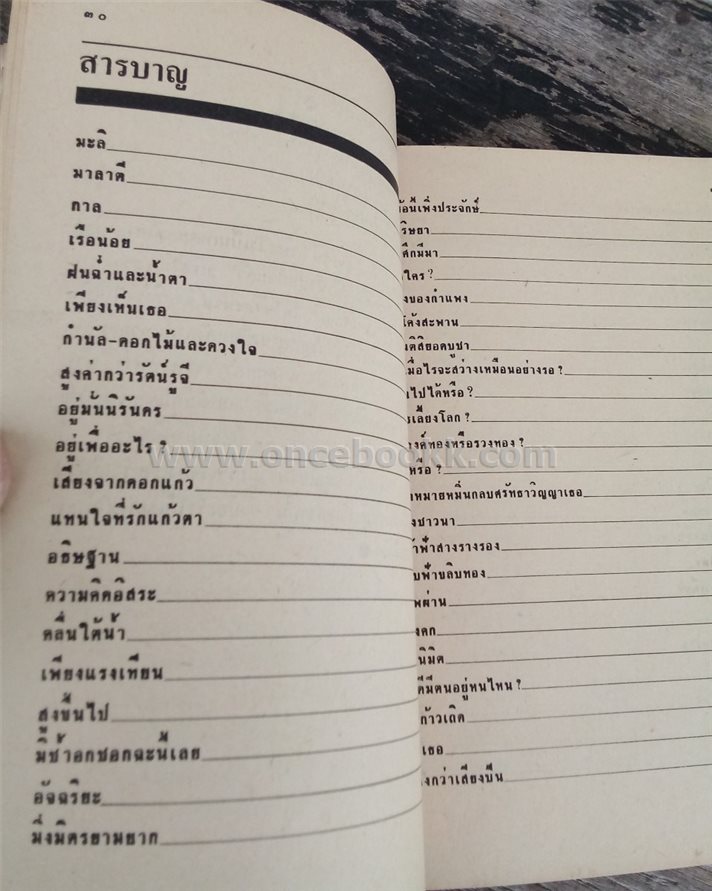 ๓๐
สารบาญ
มะลิ
มาลาตี
กาล
เรือน้อย
ฝนฉ่ำและน้ำตา
เพียงเห็นเธอ
กำนัล-ดอกไม้และดวงใจ
สูงค่ากว่ารัตน์รูจี
อยู่มั่นนิรันดร
อยู่เพื่ออะไร ?
เสียงจากดอกแก้ว
แทนใจที่รักแก้วตา
อธิษฐาน
ความคิดอิสระ
คลื่นใต้น้ำ
เพียงแรงเทียน
สูงขึ้นไป
มิช้ำอกชอกฉะนี้เลย
อัจฉริยะ
มิ่งมิตรยามยาก
เพิ่งประจักษ์
ริษยา
ดึกมีมา
ใคร ?
ของกำแพง
โค้งสะพาน
ยอดบูชา
เมื่อไรจะสว่างเหมือนอย่างรอ ?
ไปได้หรือ ?
เลี้ยงโลก ?
องค์ทองหรือรวงทอง ?
หรือ ?
หมายหมิ่นกลบศรัทธาวิญญาเธอ
ชาวนา
ฟ้าสางรางรอง
ฟ้าขลิบทอง
ผ่าน
นิมิต
มีตนอยู่หนไหน ?
ก้าวเถิด
เธอ
กว่าเสียงปืน
www.oncebookk.com